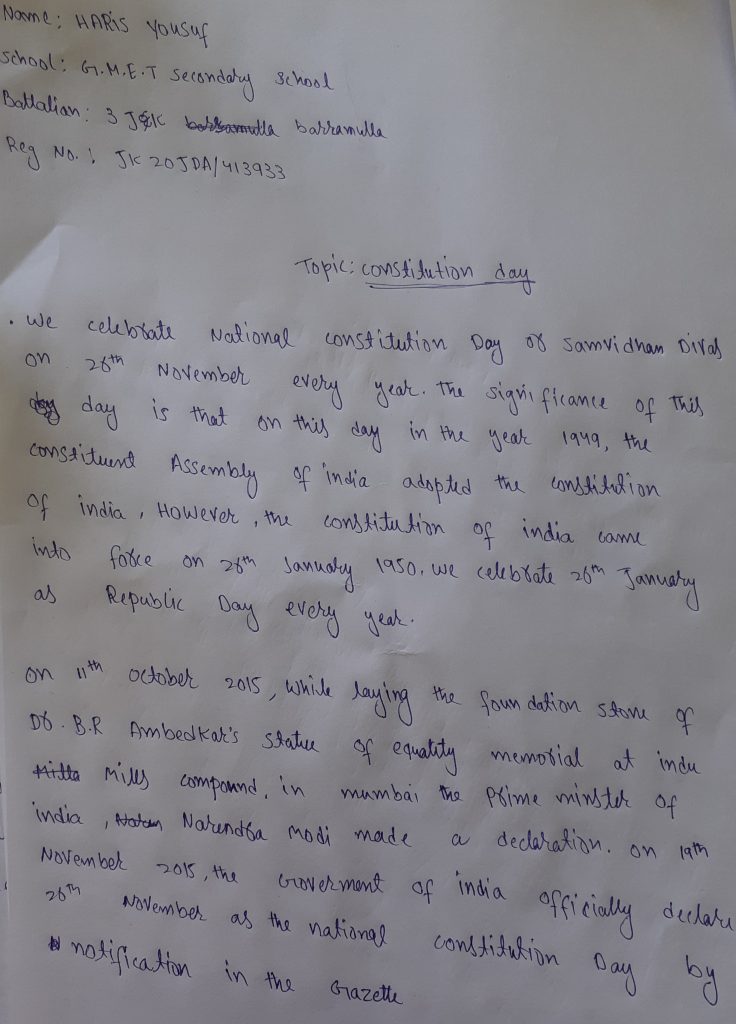 Name: HARIS Yousuf
School: G.M.E.T secondary school
Battalian: 3 J&K barramulla
Reg No.: JK20JDA/413933
Topic: constitution day
. We celebrate National constitution Day or Samvidhan Divas
on 26th November every year. The significance of this
day is that on this day in the year 1949, the
constituent Assembly of india adopted the constitution
of india, However, the constitution of india came
into force on 26th January 1950. We celebrate 26th January
as Republic Day every year.
On 11th october 2015, while laying the foundation stone of
Dr. B.R Ambedkar's statue of equality memorial at indu
Mills compound, in mumbai the prime minster of
india, Narendra modi made a declaration. on 19th
November 2015, the Goverment of india officially declare
26th November as the national constitution Day by
notification in the Gazette